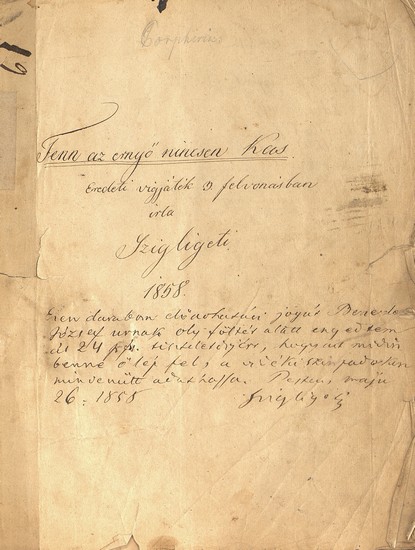 Fenn az ernyő nincsen Kas
Eredeti vígjáték 3 felvonásban
írta
Szigligeti
1858.
Ezen darabom előadhatási jogát Benedek
József urnak oly föltét alatt engedtem
át 24 tiszteletdíjért, hogy
benne ő lép fel, a vidéki színpadokon
mindenütt adathassa. Pesten, máju
26. 1858 Szigligeti